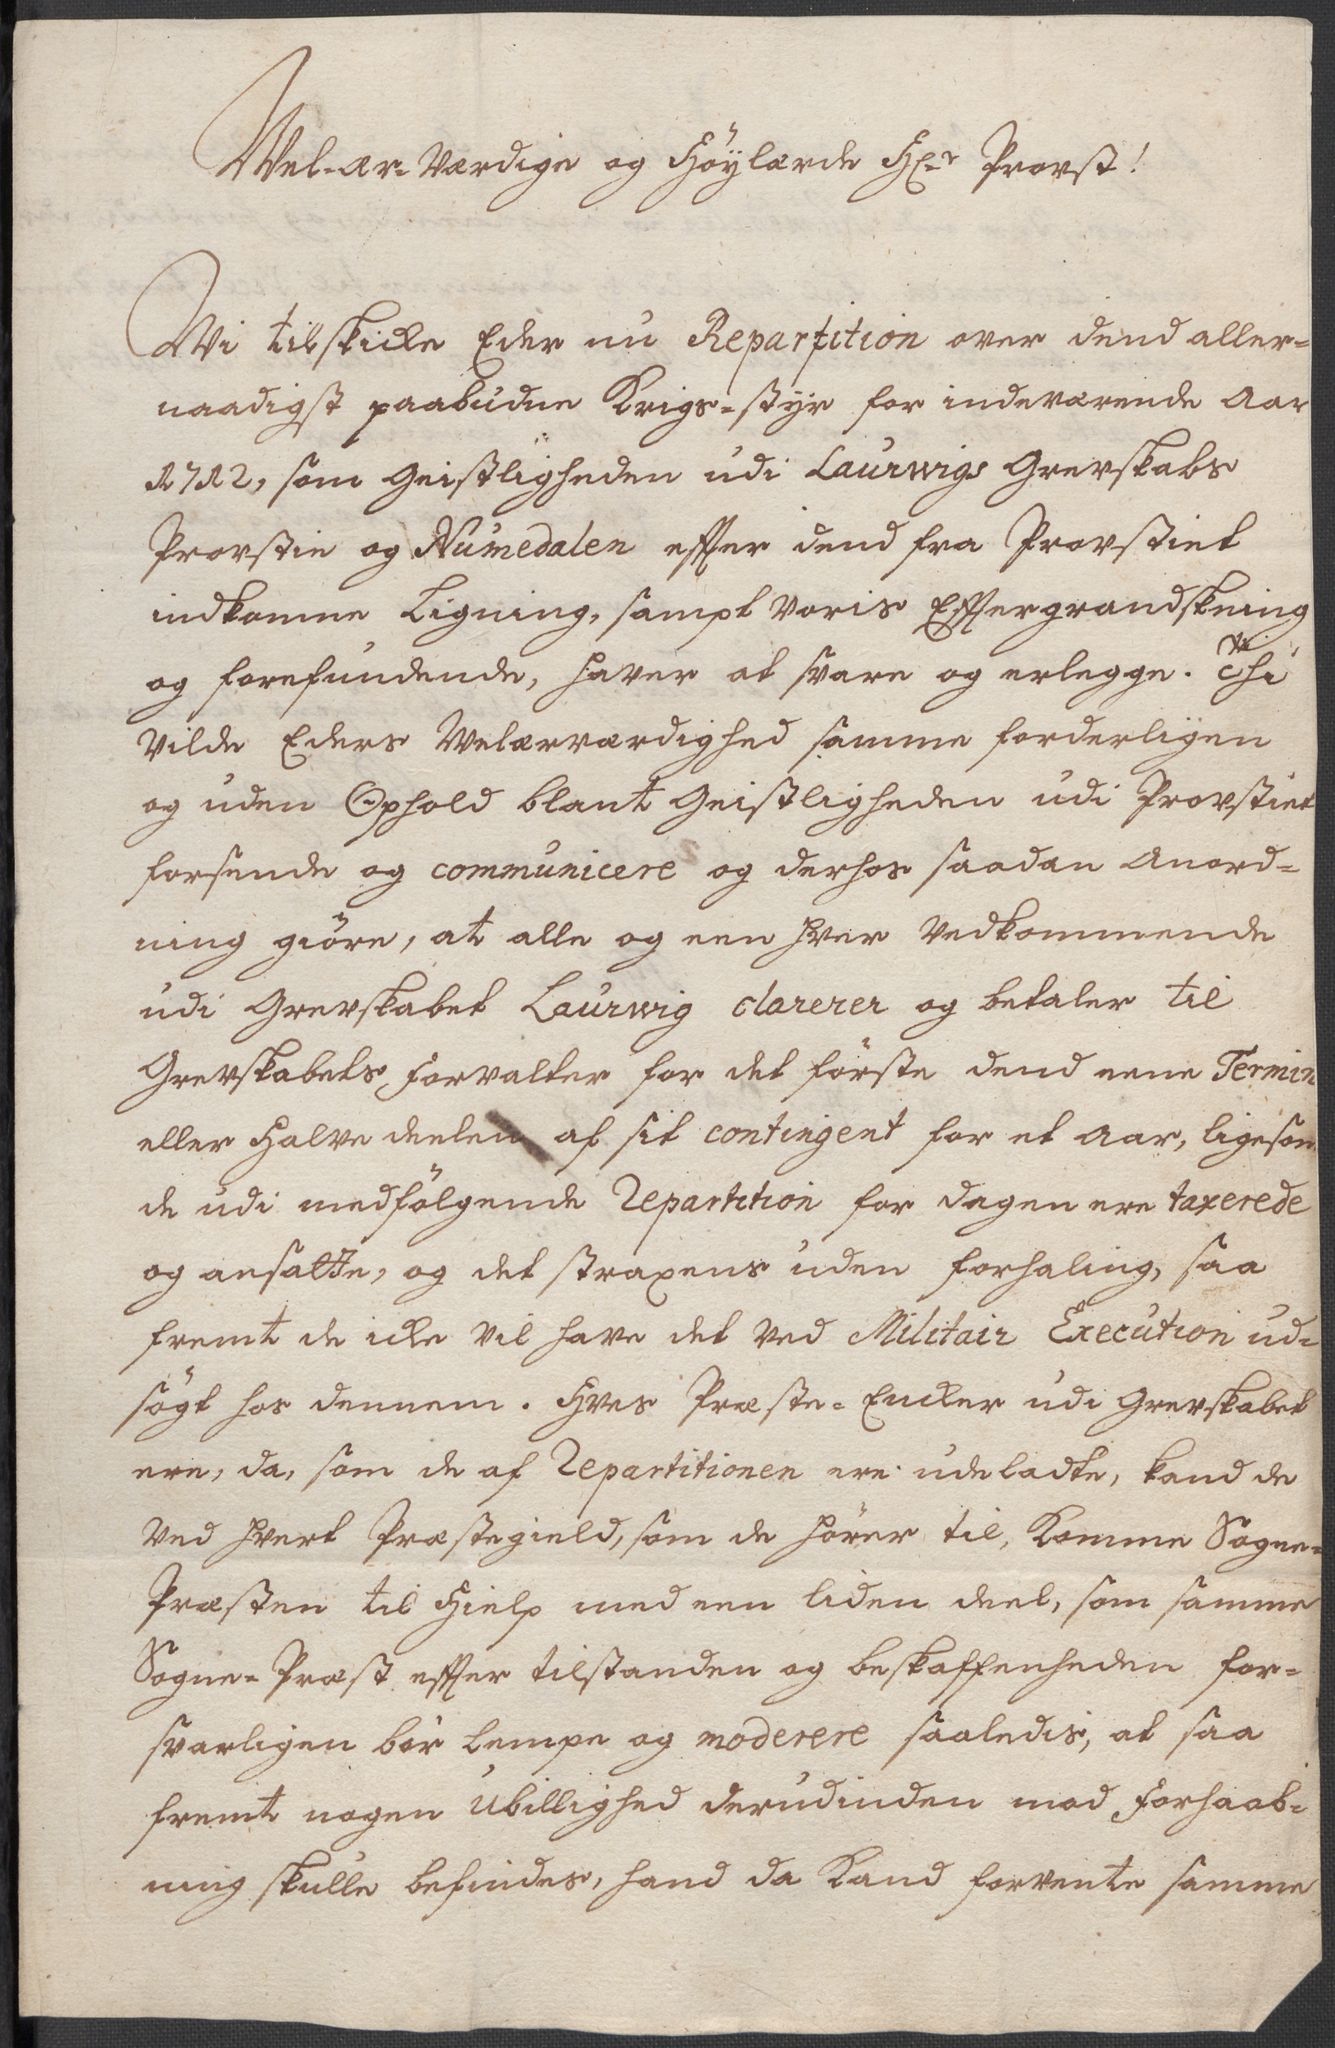 Wel-ær-værdige og Höylærde Hr Provst!
Wi tilskicke Eder nu Repartition over dend aller-
naadigst paabudne Krigs-styr for indeværende Aar
1712, som Geistligheden udi Laurwigs Grevskabs
Provstie og Numedalen efter dend fra Provstiet
indkomne Ligning, sampt voris Eftergrandskning
og forefundende, haver at svare og erlegge. Thi
vilde Eders Welærværdighed samme forderligen
og uden Ophold blant Geistligheden udi Provstiet
forsende og communicere og derhos saadan Anord-
ning giöre, at alle og een hver vedkommende
udi Grevskabet Laurwig clarerer og betaler til
Grevskabets Forvalter for det förste dend eene Termin
eller Halve deelen af sit contingent for et Aar, ligesom
de udi medfölgende Repartition for dagen ere taxerede
og ansatte, og det straxens uden forhaling, saa
fremt de icke vil have det ved Militair Execution udi
sögt hos dennem. Hves Præste-Encker udi Grevskabet
ere, da, som de af Repartitionen ere udeladte, kand de
ved hvert Præstegield, som de hörer til, Komme Sogne-
Præsten til Hielp med een liden deel, som samme
Sogne-Præst efter tilstanden og beskaffenheden for-
svarligen bör Lempe og moderere saaledis, at saa
fremt nogen Ubillighed derudinden mod Forhaab-
ning skulle befindes, hand da Kand forvente samme